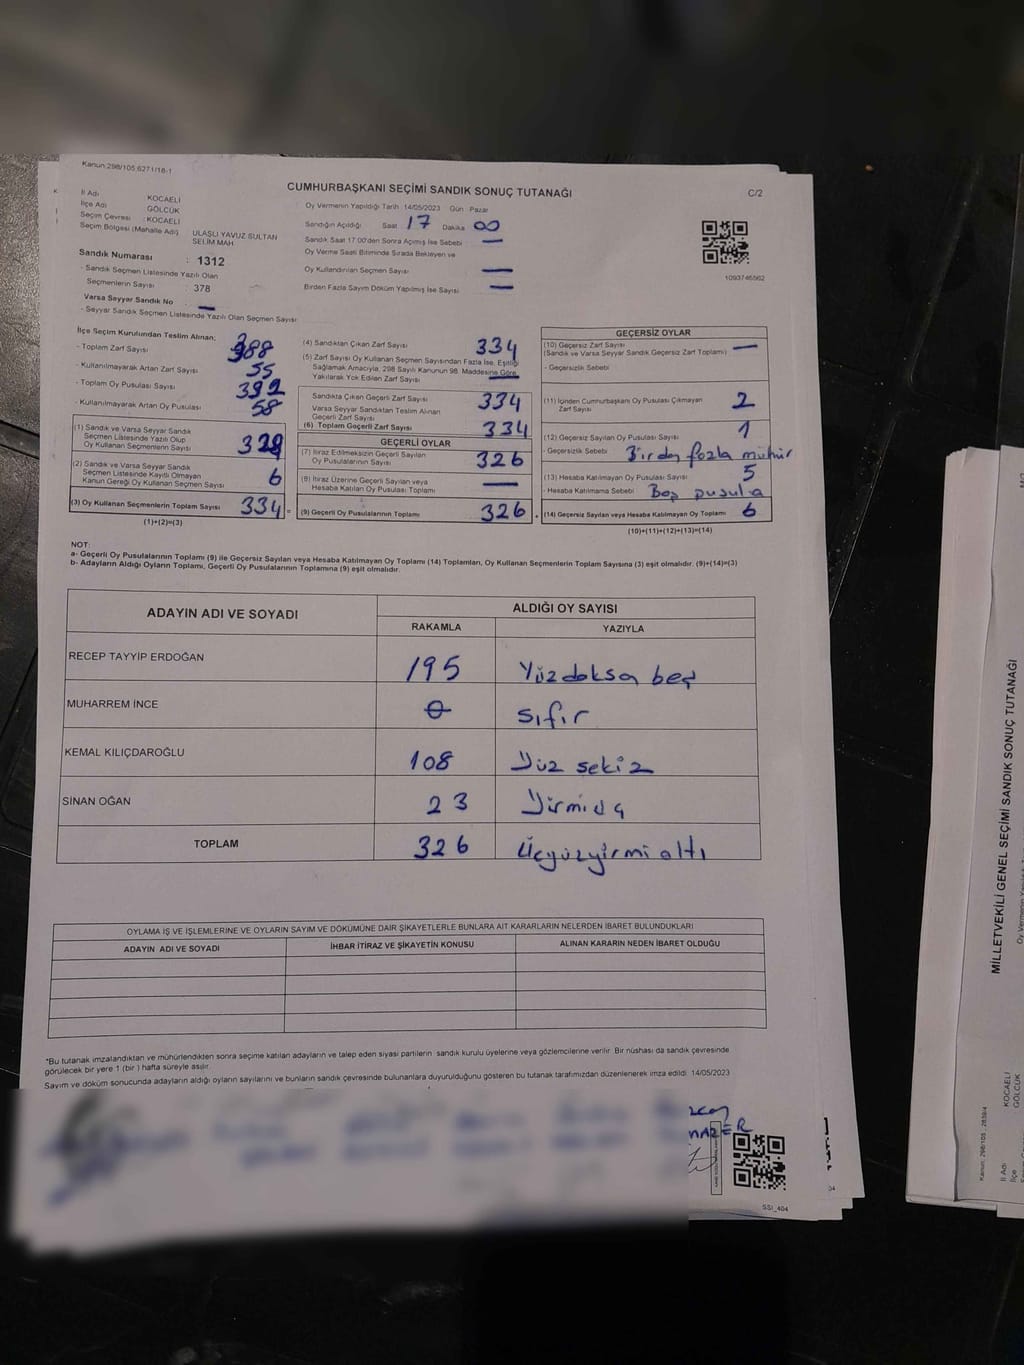 Kanun:298/105,6271/18-1
CUMHURBAŞKANI SEÇİMİ SANDIK SONUÇ TUTANAĞI
C/2
İl Adı : KOCAELİ
İlçe Adı : GÖLCÜK
Seçim Çevresi : KOCAELİ
Seçim Bölgesi (Mahalle Adı) : ULAŞLI YAVUZ SULTAN
SELİM MAH
Sandık Numarası : 1312
- Sandık Seçmen Listesinde Yazılı Olan
Seçmenlerin Sayısı : 378
Varsa Seyyar Sandık No —
- Seyyar Sandık Seçmen Listesinde Yazılı Olan Seçmen Sayısı
Oy Vermenin Yapıldığı Tarih : 14/05/2023 Gün : Pazar
Sandığın Açıldığı Saat 17 Dakika 00
Sandık Saat 17:00'den Sonra Açılmış İse Sebebi —
Oy Verme Saati Bitiminde Sırada Bekleyen ve
Oy Kullandırılan Seçmen Sayısı —
Birden Fazla Sayım Döküm Yapılmış İse Sayısı —
1093746562
İlçe Seçim Kurulundan Teslim Alınan;
- Toplam Zarf Sayısı 388
- Kullanılmayarak Artan Zarf Sayısı 55
- Toplam Oy Pusulası Sayısı 392
- Kullanılmayarak Artan Oy Pusulası 58
(1) Sandık ve Varsa Seyyar Sandık
Seçmen Listesinde Yazılı Olup
Oy Kullanan Seçmenlerin Sayısı 328
(2) Sandık ve Varsa Seyyar Sandık
Seçmen Listesinde Kayıtlı Olmayan
Kanun Gereği Oy Kullanan Seçmen Sayısı 6
(3) Oy Kullanan Seçmenlerin Toplam Sayısı 334
(1)+(2)=(3)
(4) Sandıktan Çıkan Zarf Sayısı 334
(5) Zarf Sayısı Oy Kullanan Seçmen Sayısından Fazla İse, Eşitliği
Sağlamak Amacıyla, 298 Sayılı Kanunun 98. Maddesine Göre
Yakılarak Yok Edilen Zarf Sayısı —
Sandıkta Çıkan Geçerli Zarf Sayısı 334
Varsa Seyyar Sandıktan Teslim Alınan
Geçerli Zarf Sayısı
(6) Toplam Geçerli Zarf Sayısı 334
GEÇERLİ OYLAR
(7) İtiraz Edilmeksizin Geçerli Sayılan
Oy Pusulalarının Sayısı 326
(8) İtiraz Üzerine Geçerli Sayılan veya
Hesaba Katılan Oy Pusulası Toplamı —
(9) Geçerli Oy Pusulalarının Toplamı 326
GEÇERSİZ OYLAR
(10) Geçersiz Zarf Sayısı —
(Sandık ve Varsa Seyyar Sandık Geçersiz Zarf Toplamı)
- Geçersizlik Sebebi
(11) İçinden Cumhurbaşkanı Oy Pusulası Çıkmayan
Zarf Sayısı 2
(12) Geçersiz Sayılan Oy Pusulası Sayısı 1
- Geçersizlik Sebebi Birden fazla mühür
(13) Hesaba Katılmayan Oy Pusulası Sayısı 5
- Hesaba Katılmama Sebebi Boş pusula
(14) Geçersiz Sayılan veya Hesaba Katılmayan Oy Toplamı 6
(10)+(11)+(12)+(13)=(14)
NOT:
a- Geçerli Oy Pusulalarının Toplamı (9) ile Geçersiz Sayılan veya Hesaba Katılmayan Oy Toplamı (14) Toplamları, Oy Kullanan Seçmenlerin Toplam Sayısına (3) eşit olmalıdır. (9)+(14)=(3)
b- Adayların Aldığı Oyların Toplamı, Geçerli Oy Pusulalarının Toplamına (9) eşit olmalıdır.
ADAYIN ADI VE SOYADI
ALDIĞI OY SAYISI
RAKAMLA YAZIYLA
RECEP TAYYİP ERDOĞAN 195 Yüzdoksa beş
MUHARREM İNCE 0 sıfır
KEMAL KILIÇDAROĞLU 108 Yüz sekiz
SİNAN OĞAN 23 Yirmi üç
TOPLAM 326 Üçyüzyirmi altı
OYLAMA İŞ VE İŞLEMLERİNE VE OYLARIN SAYIM VE DÖKÜMÜNE DAİR ŞİKAYETLERLE BUNLARA AİT KARARLARIN NELERDEN İBARET BULUNDUKLARI
ADAYIN ADI VE SOYADI İHBAR İTİRAZ VE ŞİKAYETİN KONUSU ALINAN KARARIN NEDEN İBARET OLDUĞU
*Bu tutanak imzalandıktan ve mühürlendikten sonra seçime katılan adayların ve talep eden siyasi partilerin sandık kurulu üyelerine veya gözlemcilerine verilir. Bir nüshası da sandık çevresinde
görülecek bir yere 1 (bir) hafta süreyle asılır.
Sayım ve döküm sonucunda adayların aldığı oyların sayılarını ve bunların sandık çevresinde bulunanlara duyurulduğunu gösteren bu tutanak tarafımızdan düzenlenerek imza edildi. 14/05/2023
SSI_404
MİLLETVEKİLİ GENEL SEÇİMİ SANDIK SONUÇ TUTANAĞI
İl Adı : KOCAELİ
İlçe : GÖLCÜK